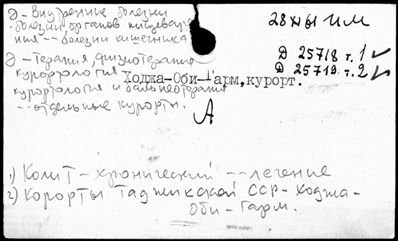 Э - Внутренние болезни
болезни органов пищеваре
ния -- болезни кишечника
28 НЫ ИМ
Д 25718 т. 1 ✓
Д 25719 т. 2 ✓
Э - Терапия, физиотерапия
курортология
Ходжа-Оби-Гарм, курорт.
курортология и бальнеотерапия
-- отдельные курорты.
А
1) Колит - хронический -- лечение
2) Курорты Таджикской ССР - Ходжа-
Оби - Гарм.